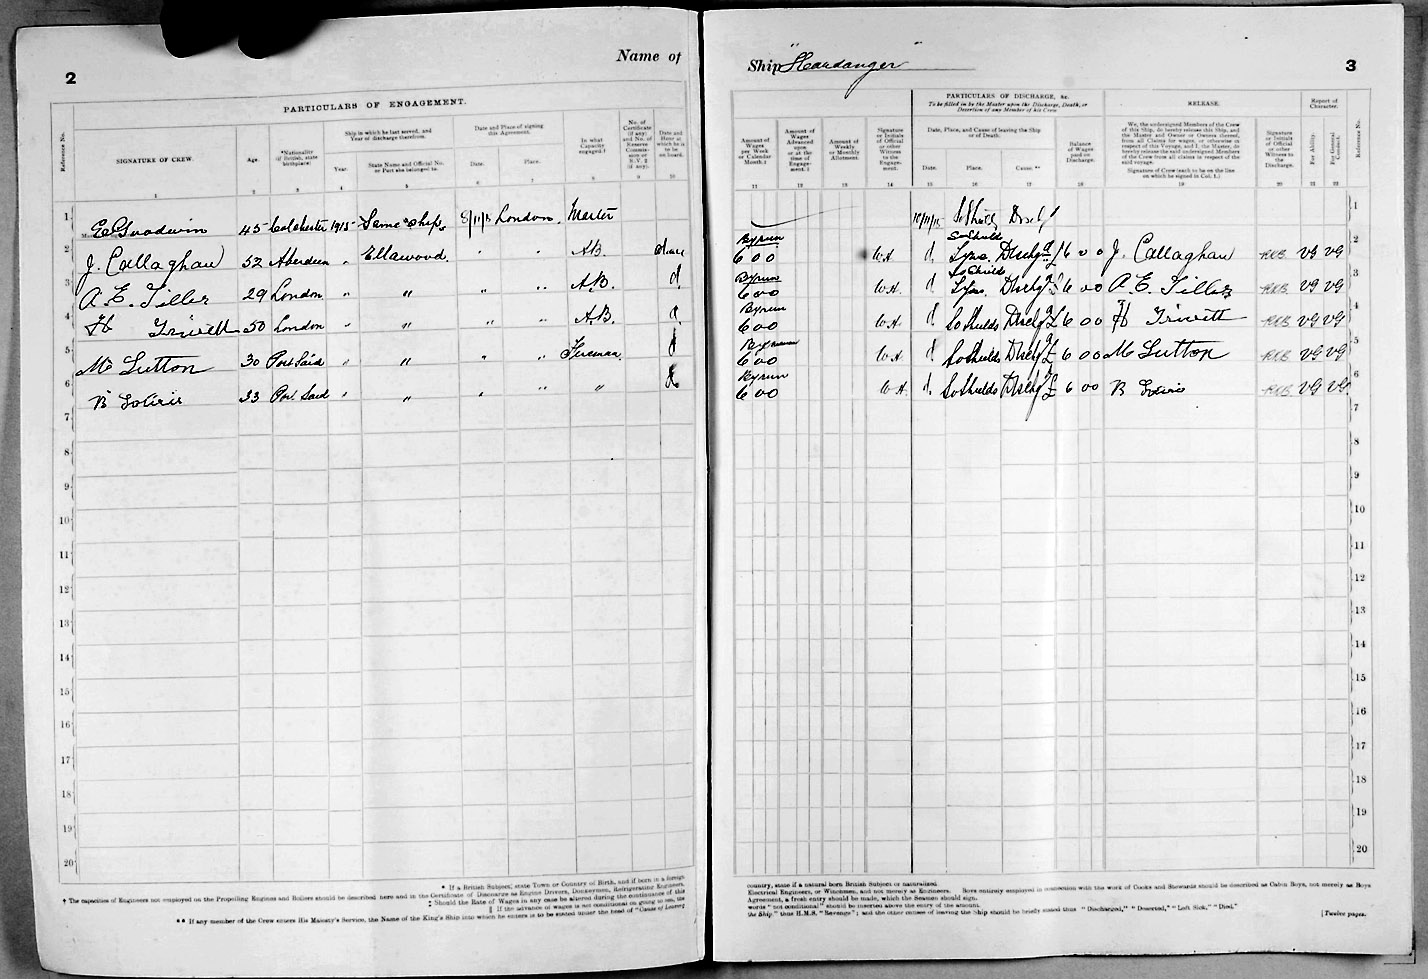 2
Name of
PARTICULARS OF ENGAGEMENT.
Reference No.
SIGNATURE OF CREW.
Age.
*Nationality (if British, state birthplace)
Ship in which he last served, and Year of discharge therefrom.
Year.
State Name and Official No. or Port she belonged to.
Date and Place of signing this Agreement.
Date.
Place.
In what Capacity engaged.†
No. of Certificate (if any) and No. of Reserve Commission or R.V.2 (if any).
Date and Hour at which he is to be on board.
1 2 3 4 5 6 7 8 9 10
1 E Goodwin 45 Colchester 1915 Same Ship 8/11/15 London Master
2 J. Callaghan 52 Aberdeen " Ellawood " " A.B.
3 A. E. Tiller 29 London " " " " A.B.
4 H Trivett 50 London " " " " A.B.
5 M Sutton 30 Port Said " " " " Fireman
6 B 33 Port Said " " " " "
7
8
9
10
11
12
13
14
15
16
17
18
19
20
* If a British Subject, state Town or Country of Birth, and if born in a foreign
† The capacities of Engineers not employed on the Propelling Engines and Boilers should be described here and in the Certificate of Discharge as Engine Drivers, Donkeymen, Refrigerating Engineers,
‡ Should the Rate of Wages in any case be altered during the continuance of this
|| If the advance of wages is not conditional on going to sea, the
** If any member of the Crew enters His Majesty's Service, the Name of the King's Ship into which he enters is to be stated under the head of "Cause of Leaving
Ship "Hardanger"
3
PARTICULARS OF DISCHARGE, &c.
To be filled in by the Master upon the Discharge, Death, or Desertion of any Member of his Crew.
RELEASE.
Report of Character.
Amount of Wages per Week or Calendar Month.‡
Amount of Wages Advanced upon or at the time of Engagement.‡
Amount of Weekly or Monthly Allotment.
Signature or Initials of Official or other Witness to the Engagement.
Date, Place, and Cause of leaving the Ship or of Death.
Date.
Place.
Cause.**
Balance of Wages paid on Discharge.
We, the undersigned Members of the Crew of this Ship, do hereby release this Ship, and the Master and Owner or Owners thereof, from all Claims for wages, or otherwise in respect of this Voyage, and I, the Master, do hereby release the said undersigned Members of the Crew from all claims in respect of the said voyage.
Signature of Crew (each to be on the line on which he signed in Col. 1.)
Signature or Initials of Official or other Witness to the Discharge.
For Ability.
For General Conduct.
Reference No.
11 12 13 14 15 16 17 18 19 20 21 22
So Shields Dischgd 1
By run So Shields
6 0 0 Dischgd £6 0 0 J. Callaghan VG VG 2
By run So Shields
6 0 0 Dischgd £6 0 0 A. E. Tiller VG VG 3
By run
6 0 0 So Shields Dischgd £6 0 0 H Trivett VG VG 4
By run
6 0 0 So Shields Dischgd £6 0 0 M Sutton VG VG 5
By run
6 0 0 So Shields Dischgd £6 0 0 B VG VG 6
7
8
9
10
11
12
13
14
15
16
17
18
19
20
country, state if a natural born British Subject or naturalized.
Electrical Engineers, or Winchmen, and not merely as Engineers. Boys entirely employed in connection with the work of Cooks and Stewards should be described as Cabin Boys, not merely as Boys
Agreement, a fresh entry should be made, which the Seamen should sign.
words "not conditional" should be inserted above the entry of the amount.
the Ship" thus H.M.S. "Revenge"; and the other causes of leaving the Ship should be briefly stated thus "Discharged," "Deserted," "Left Sick," "Died."
[Twelve pages.